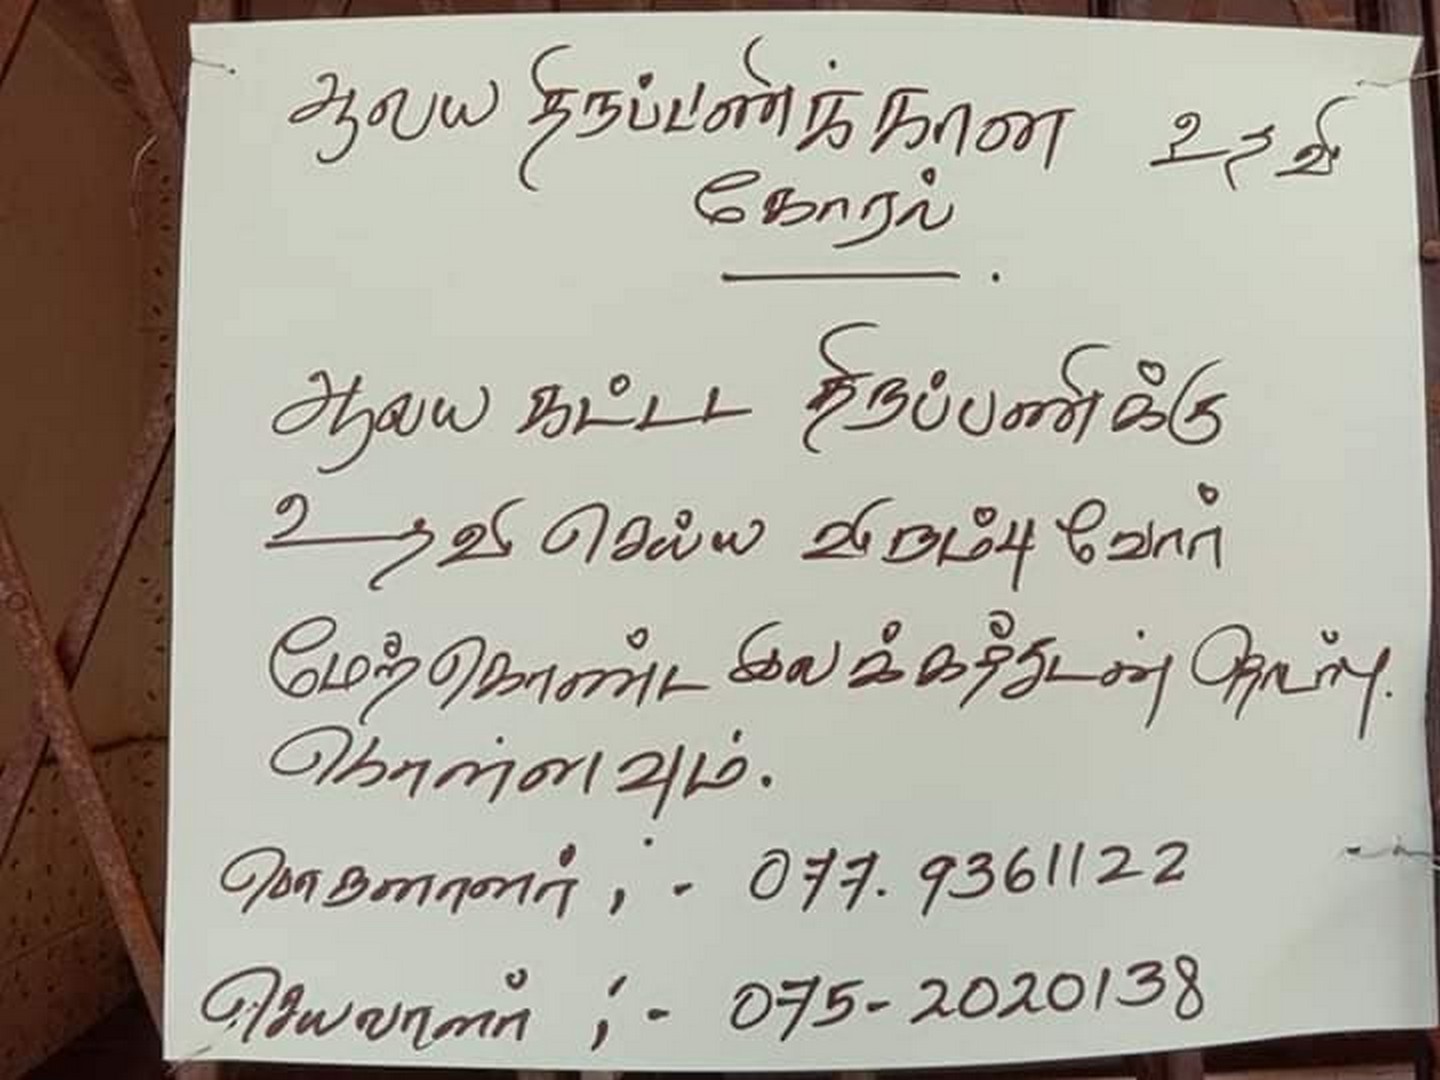 ஆலய திருப்பணிக்கான உதவி
கோரல்
ஆலய கட்டட திருப்பணிக்கு
உதவி செய்ய விரும்புவோர்
மேற்கொண்ட இலக்கத்துடன் தொடர்பு
கொள்ளவும்.
பொருளாளர் ;- 077. 9361122
செயலாளர் ;- 075-2020138